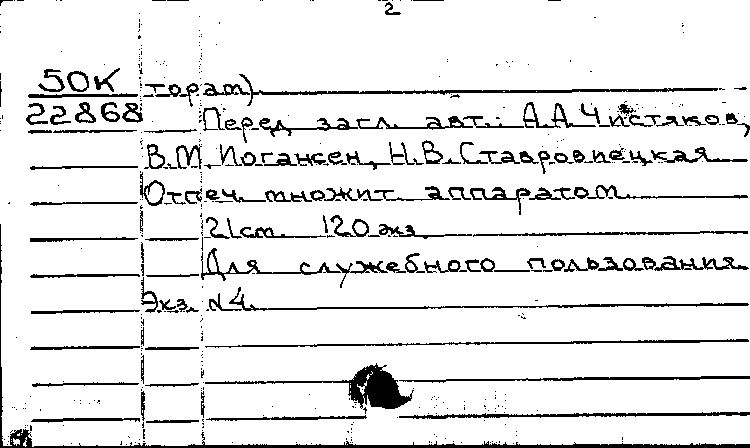 2
50К торат).
22868 Перед загл. авт.: А.А.Чистяков,
В.М.Иогансен, Н.В.Ставровецкая
Отпеч. множит. аппаратом.
21ст. 120 экз.
Для служебного пользования.
Экз. №4.